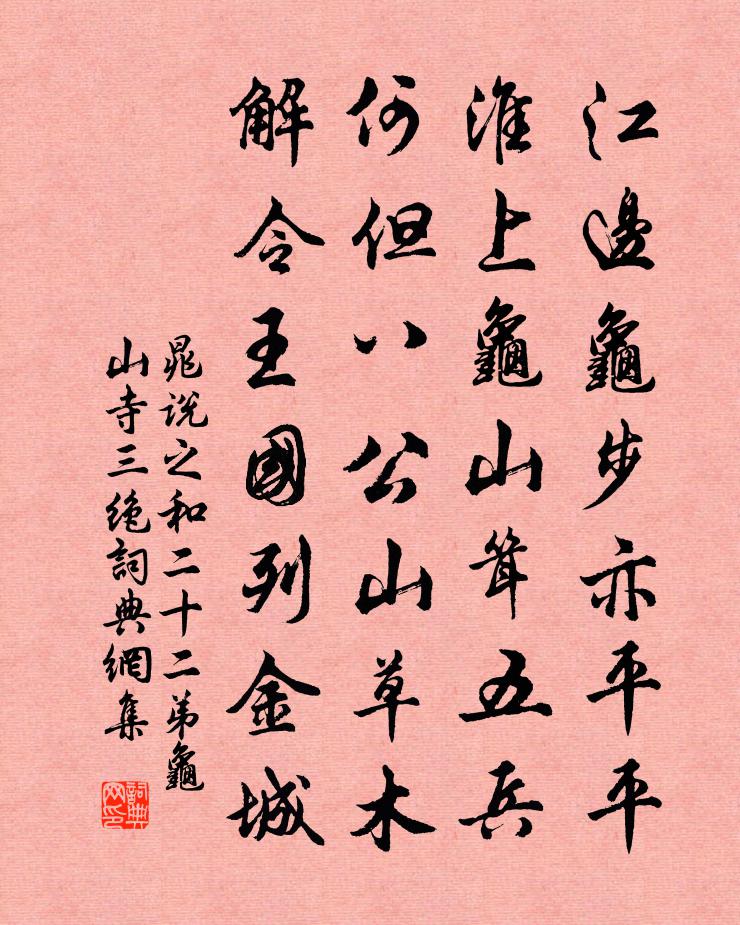 江邊龜步亦平平
淮上龜山聳五兵
何但八公山草木
解令王國列金城
晁說之和二十二弟龜
山寺三絕詞典網集
詞典网印